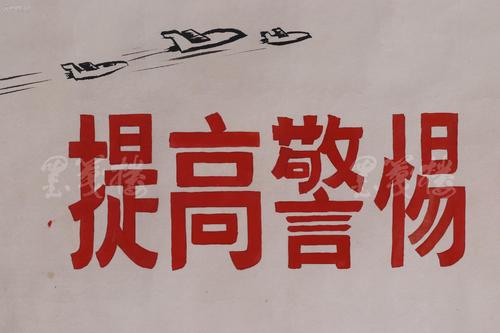 提高警惕